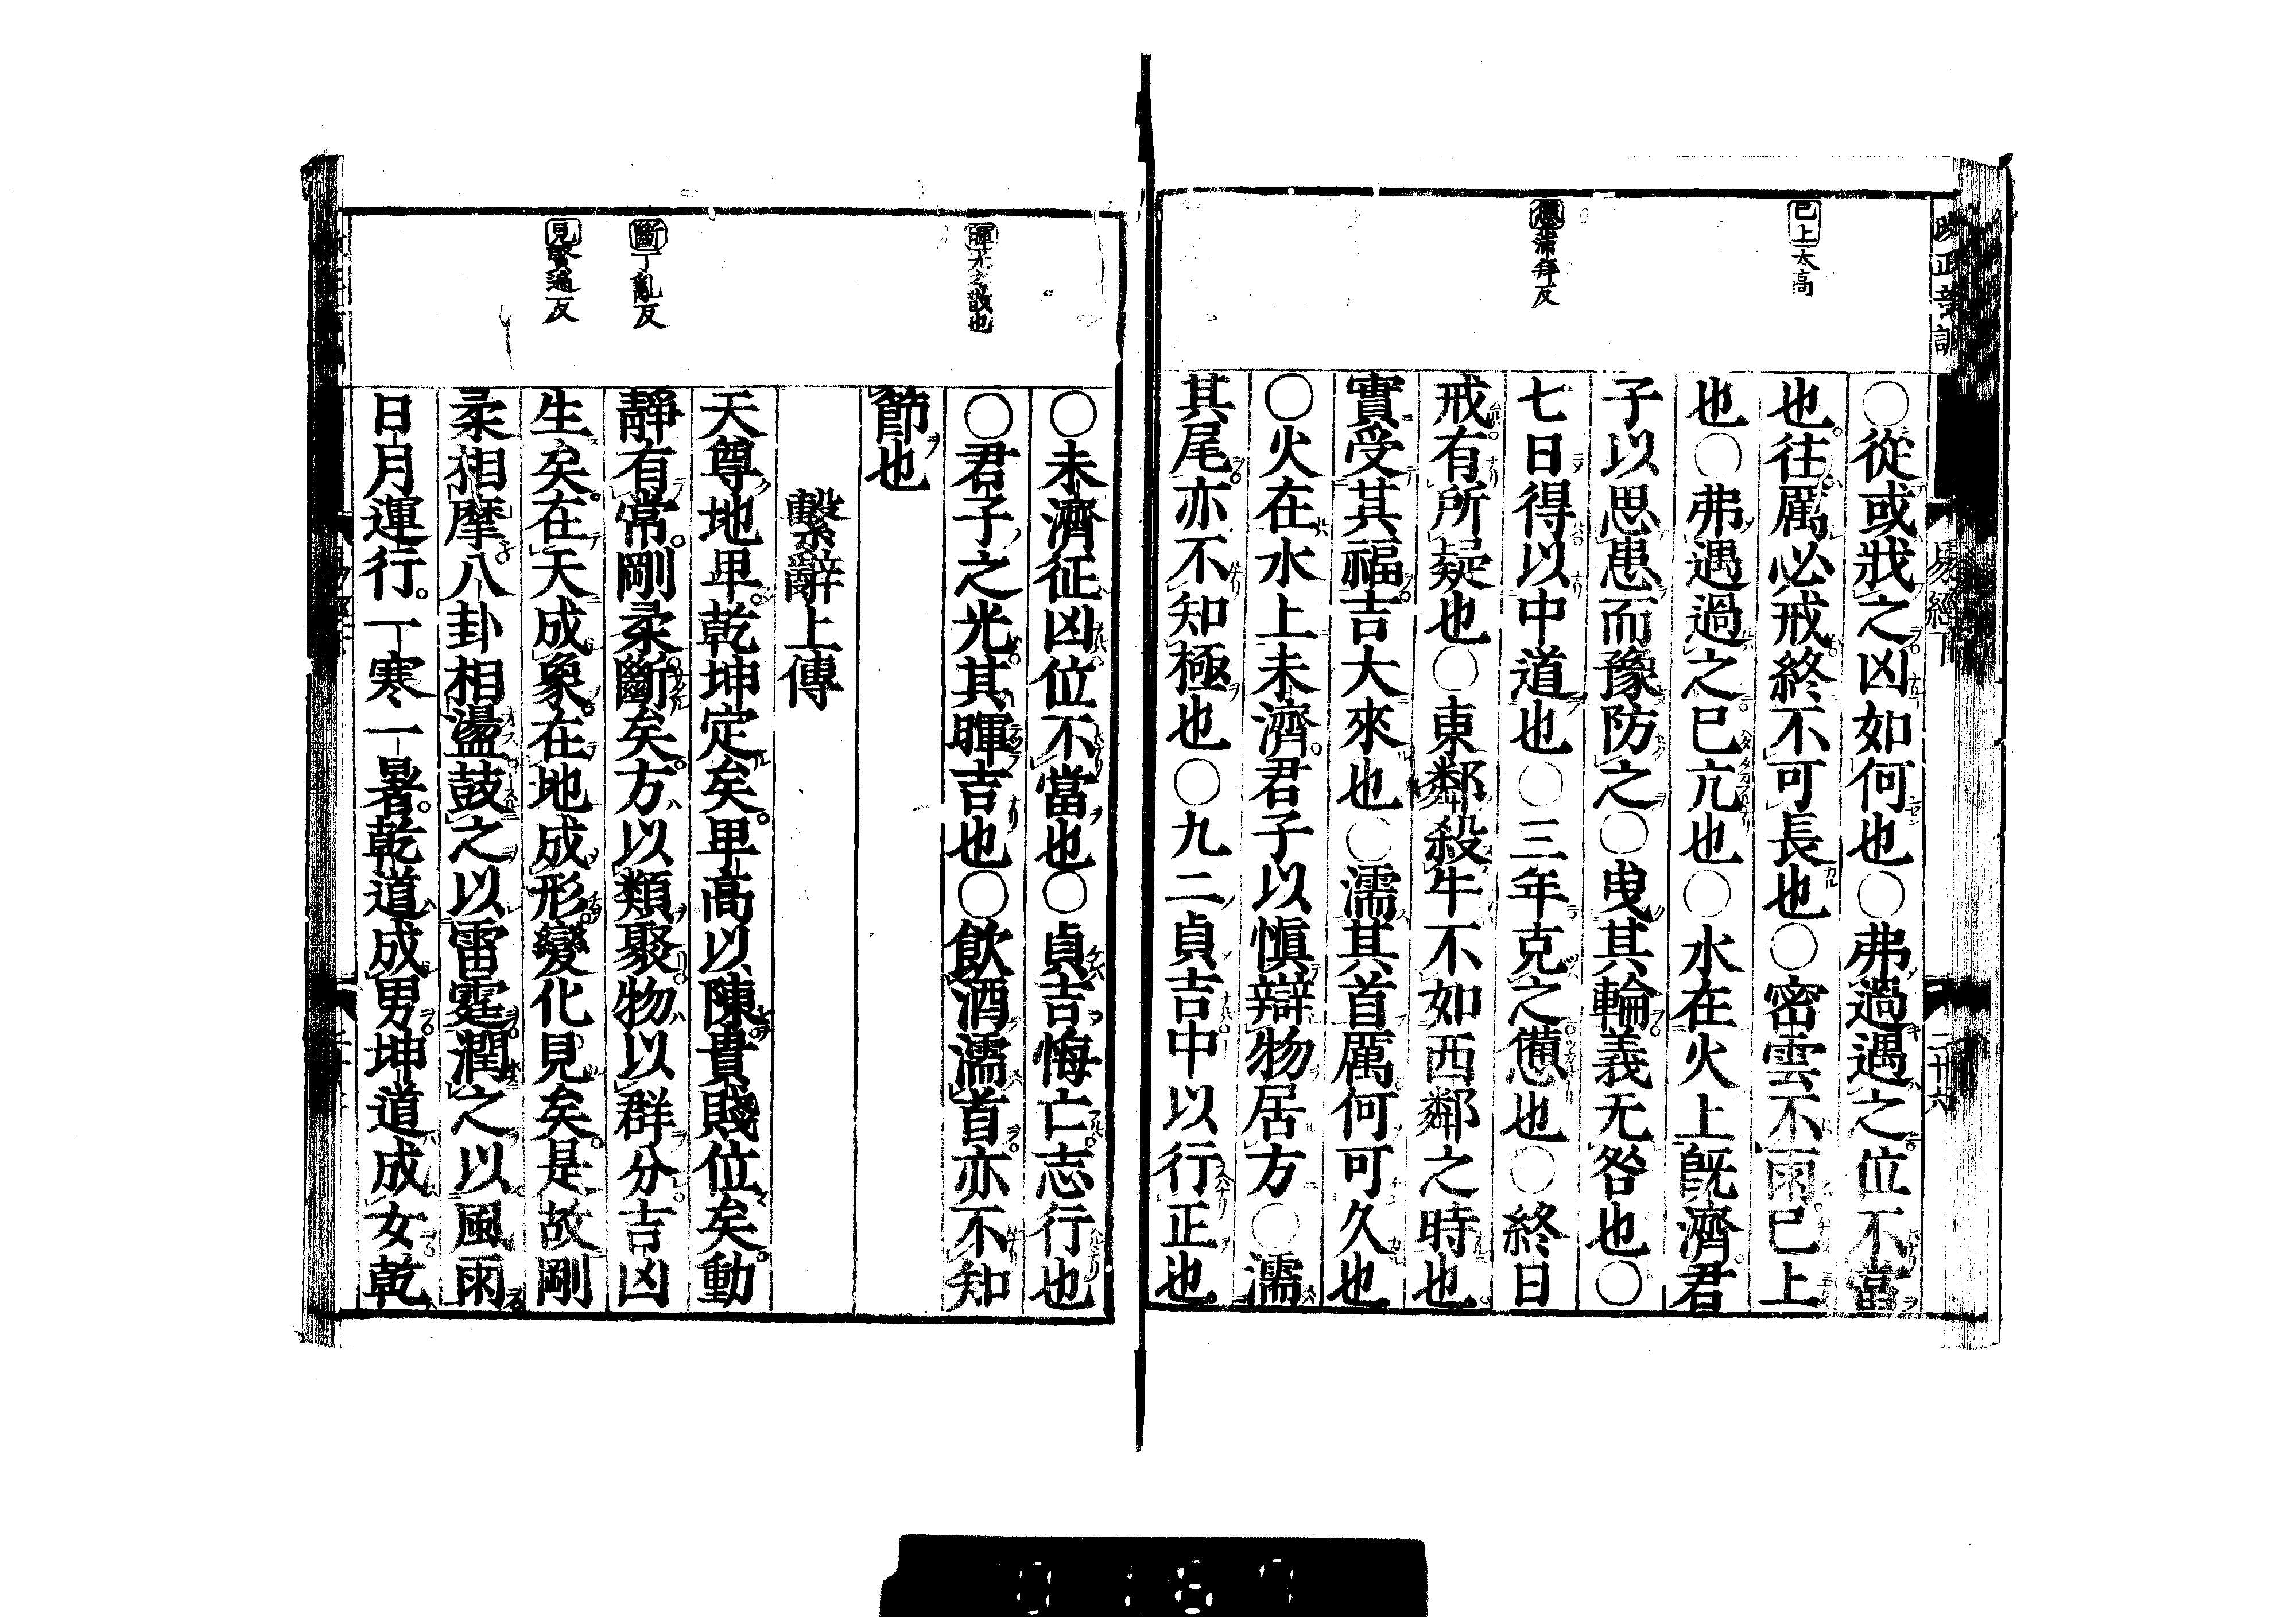 已上太高
憊蒲拜反
○從或戕之凶如何也○弗過遇之位不當
也往厲必戒終不可長也○密雲不雨已上
也○弗遇過之已亢也○水在火上既濟君
子以思患而豫防之○曳其輪義无咎也○
七日得以中道也○三年克之憊也○終日
戒有所疑也○東鄰殺牛不如西鄰之時也
實受其福吉大來也○濡其首厲何可久也
○火在水上未濟君子以慎辯物居方○濡
其尾亦不知極也○九二貞吉中以行正也
易經下
三十六
暉光之散也
斷丁亂反
見賢遍反
○未濟征凶位不當也○貞吉悔亡志行也
○君子之光其暉吉也○飲酒濡首亦不知
節也
繫辭上傳
天尊地卑乾坤定矣卑高以陳貴賤位矣動
靜有常剛柔斷矣方以類聚物以群分吉凶
生矣在天成象在地成形變化見矣是故剛
柔相摩八卦相盪鼓之以雷霆潤之以風雨
日月運行一寒一暑乾道成男坤道成女乾